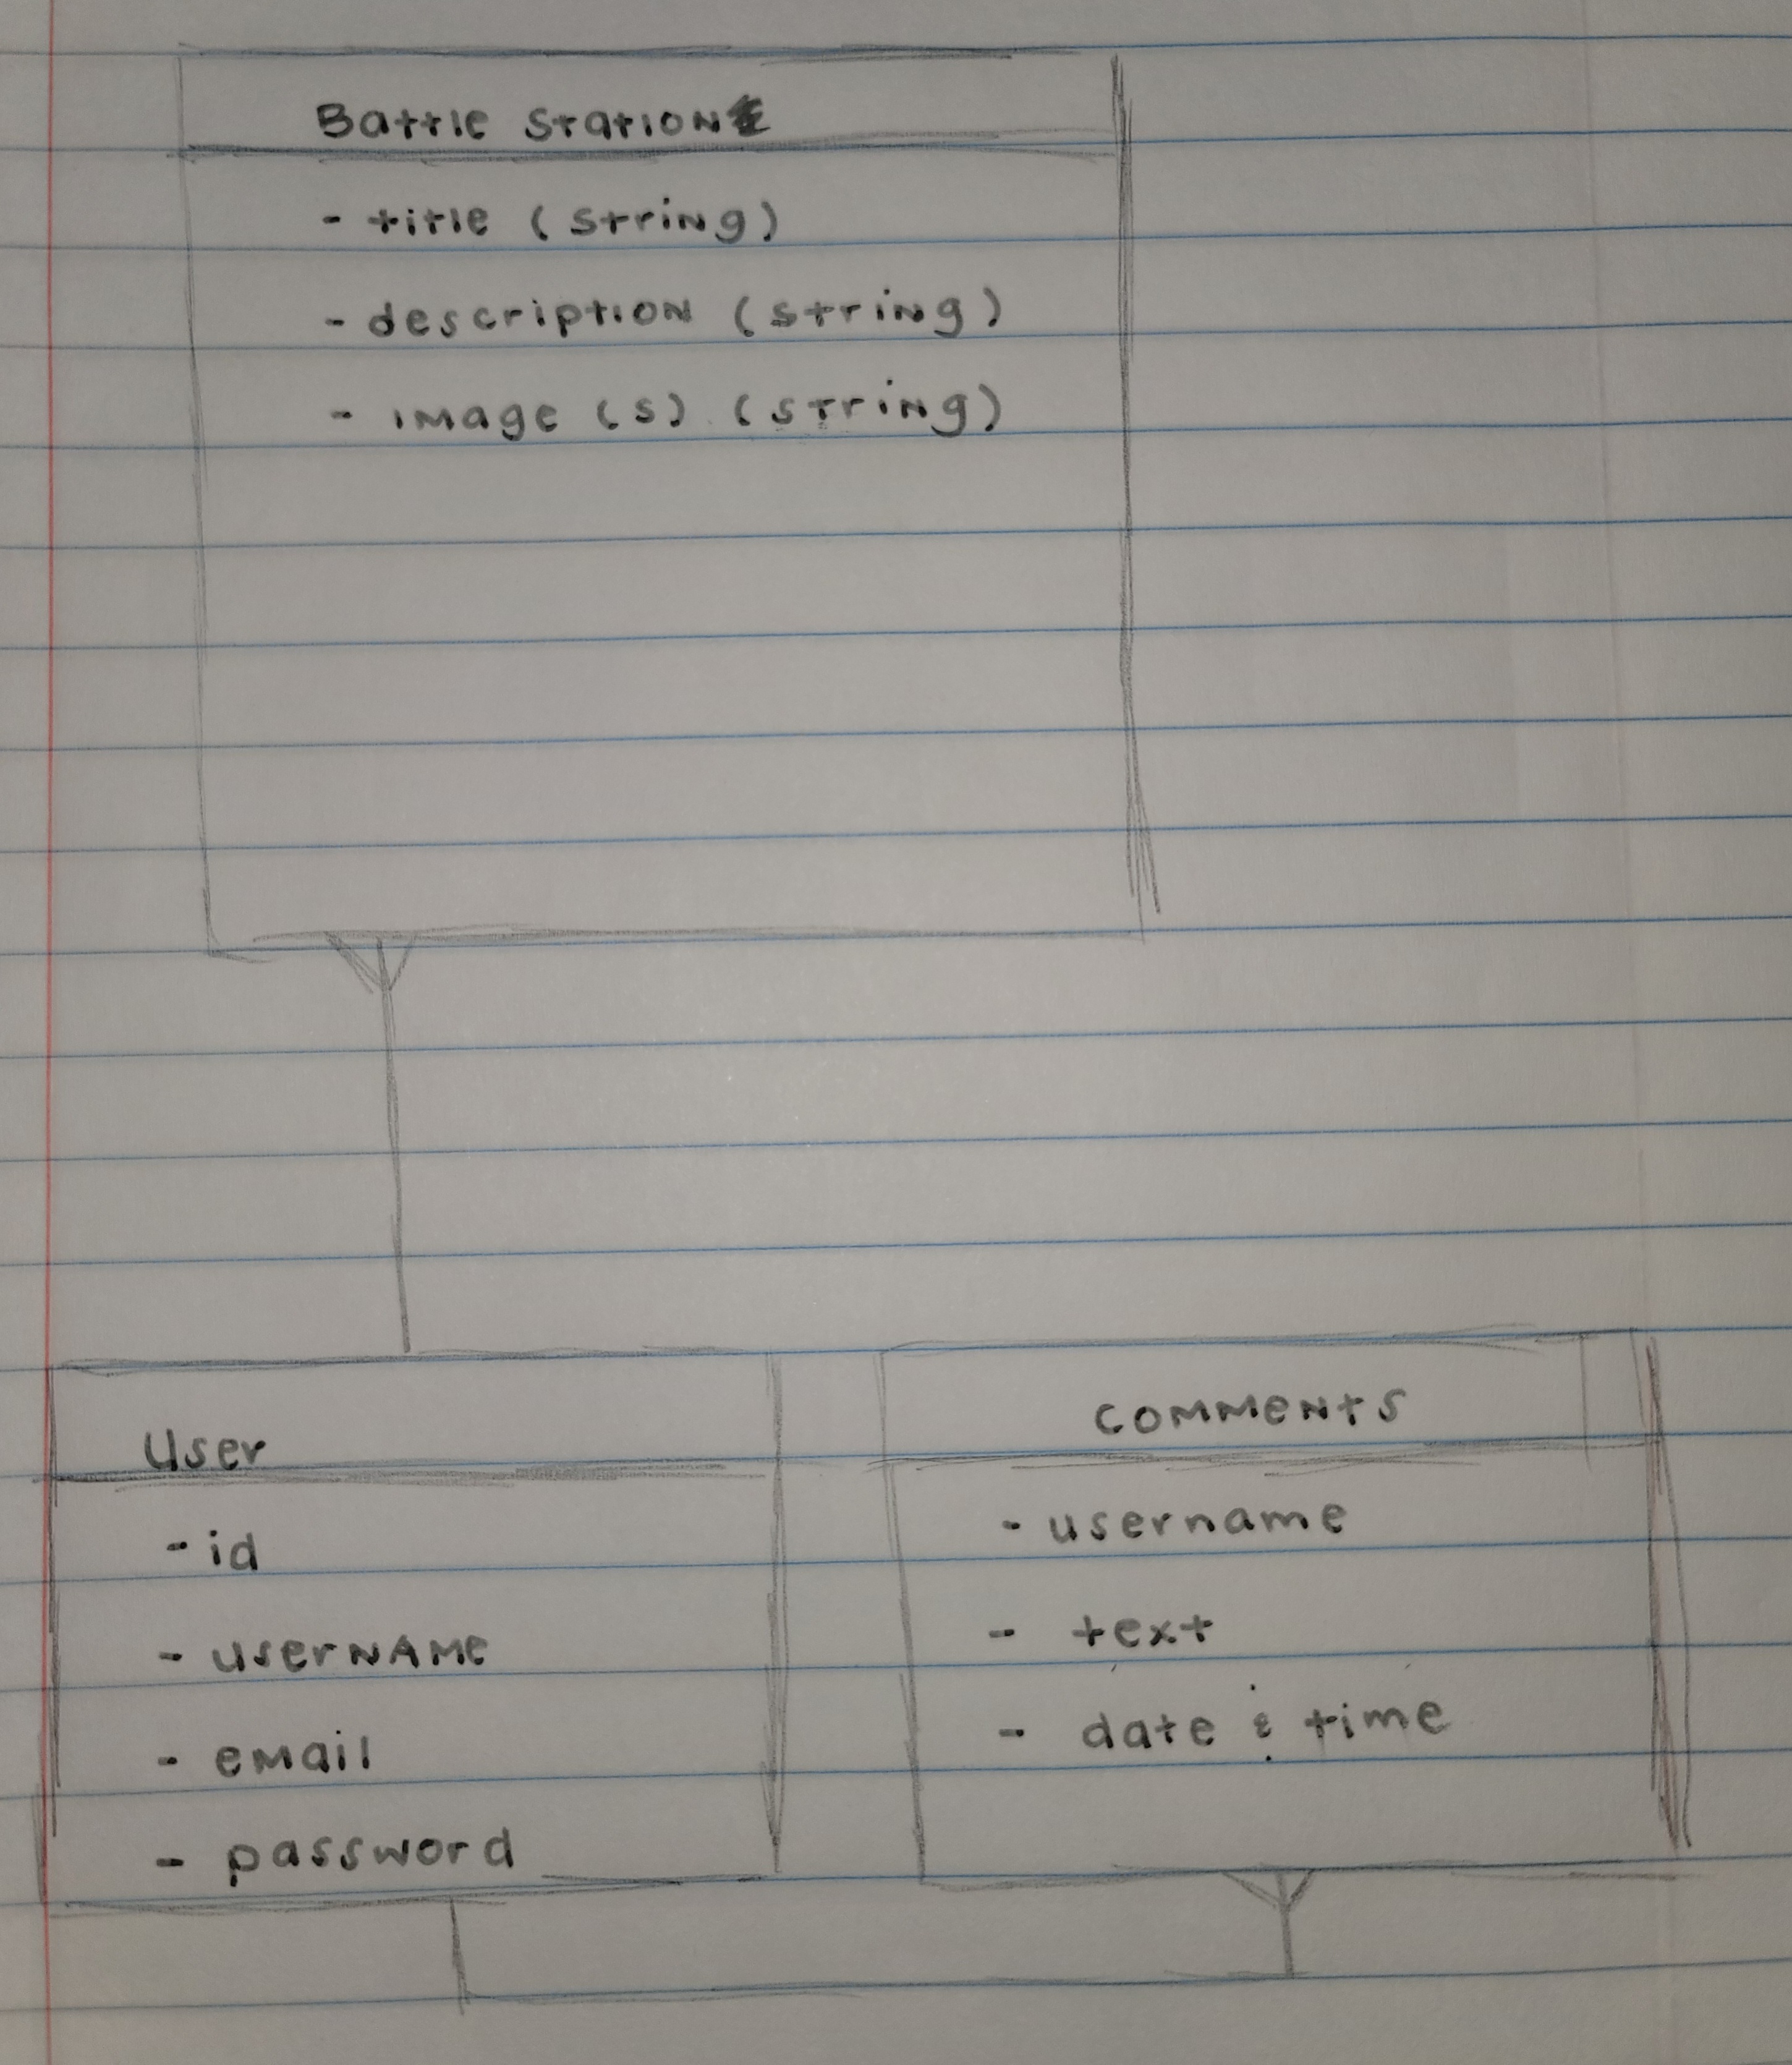 Battle Station
- title (string)
- description (string)
- image (s) (string)
User
- id
- username
- email
- password
comments
- username
- text
- date & time